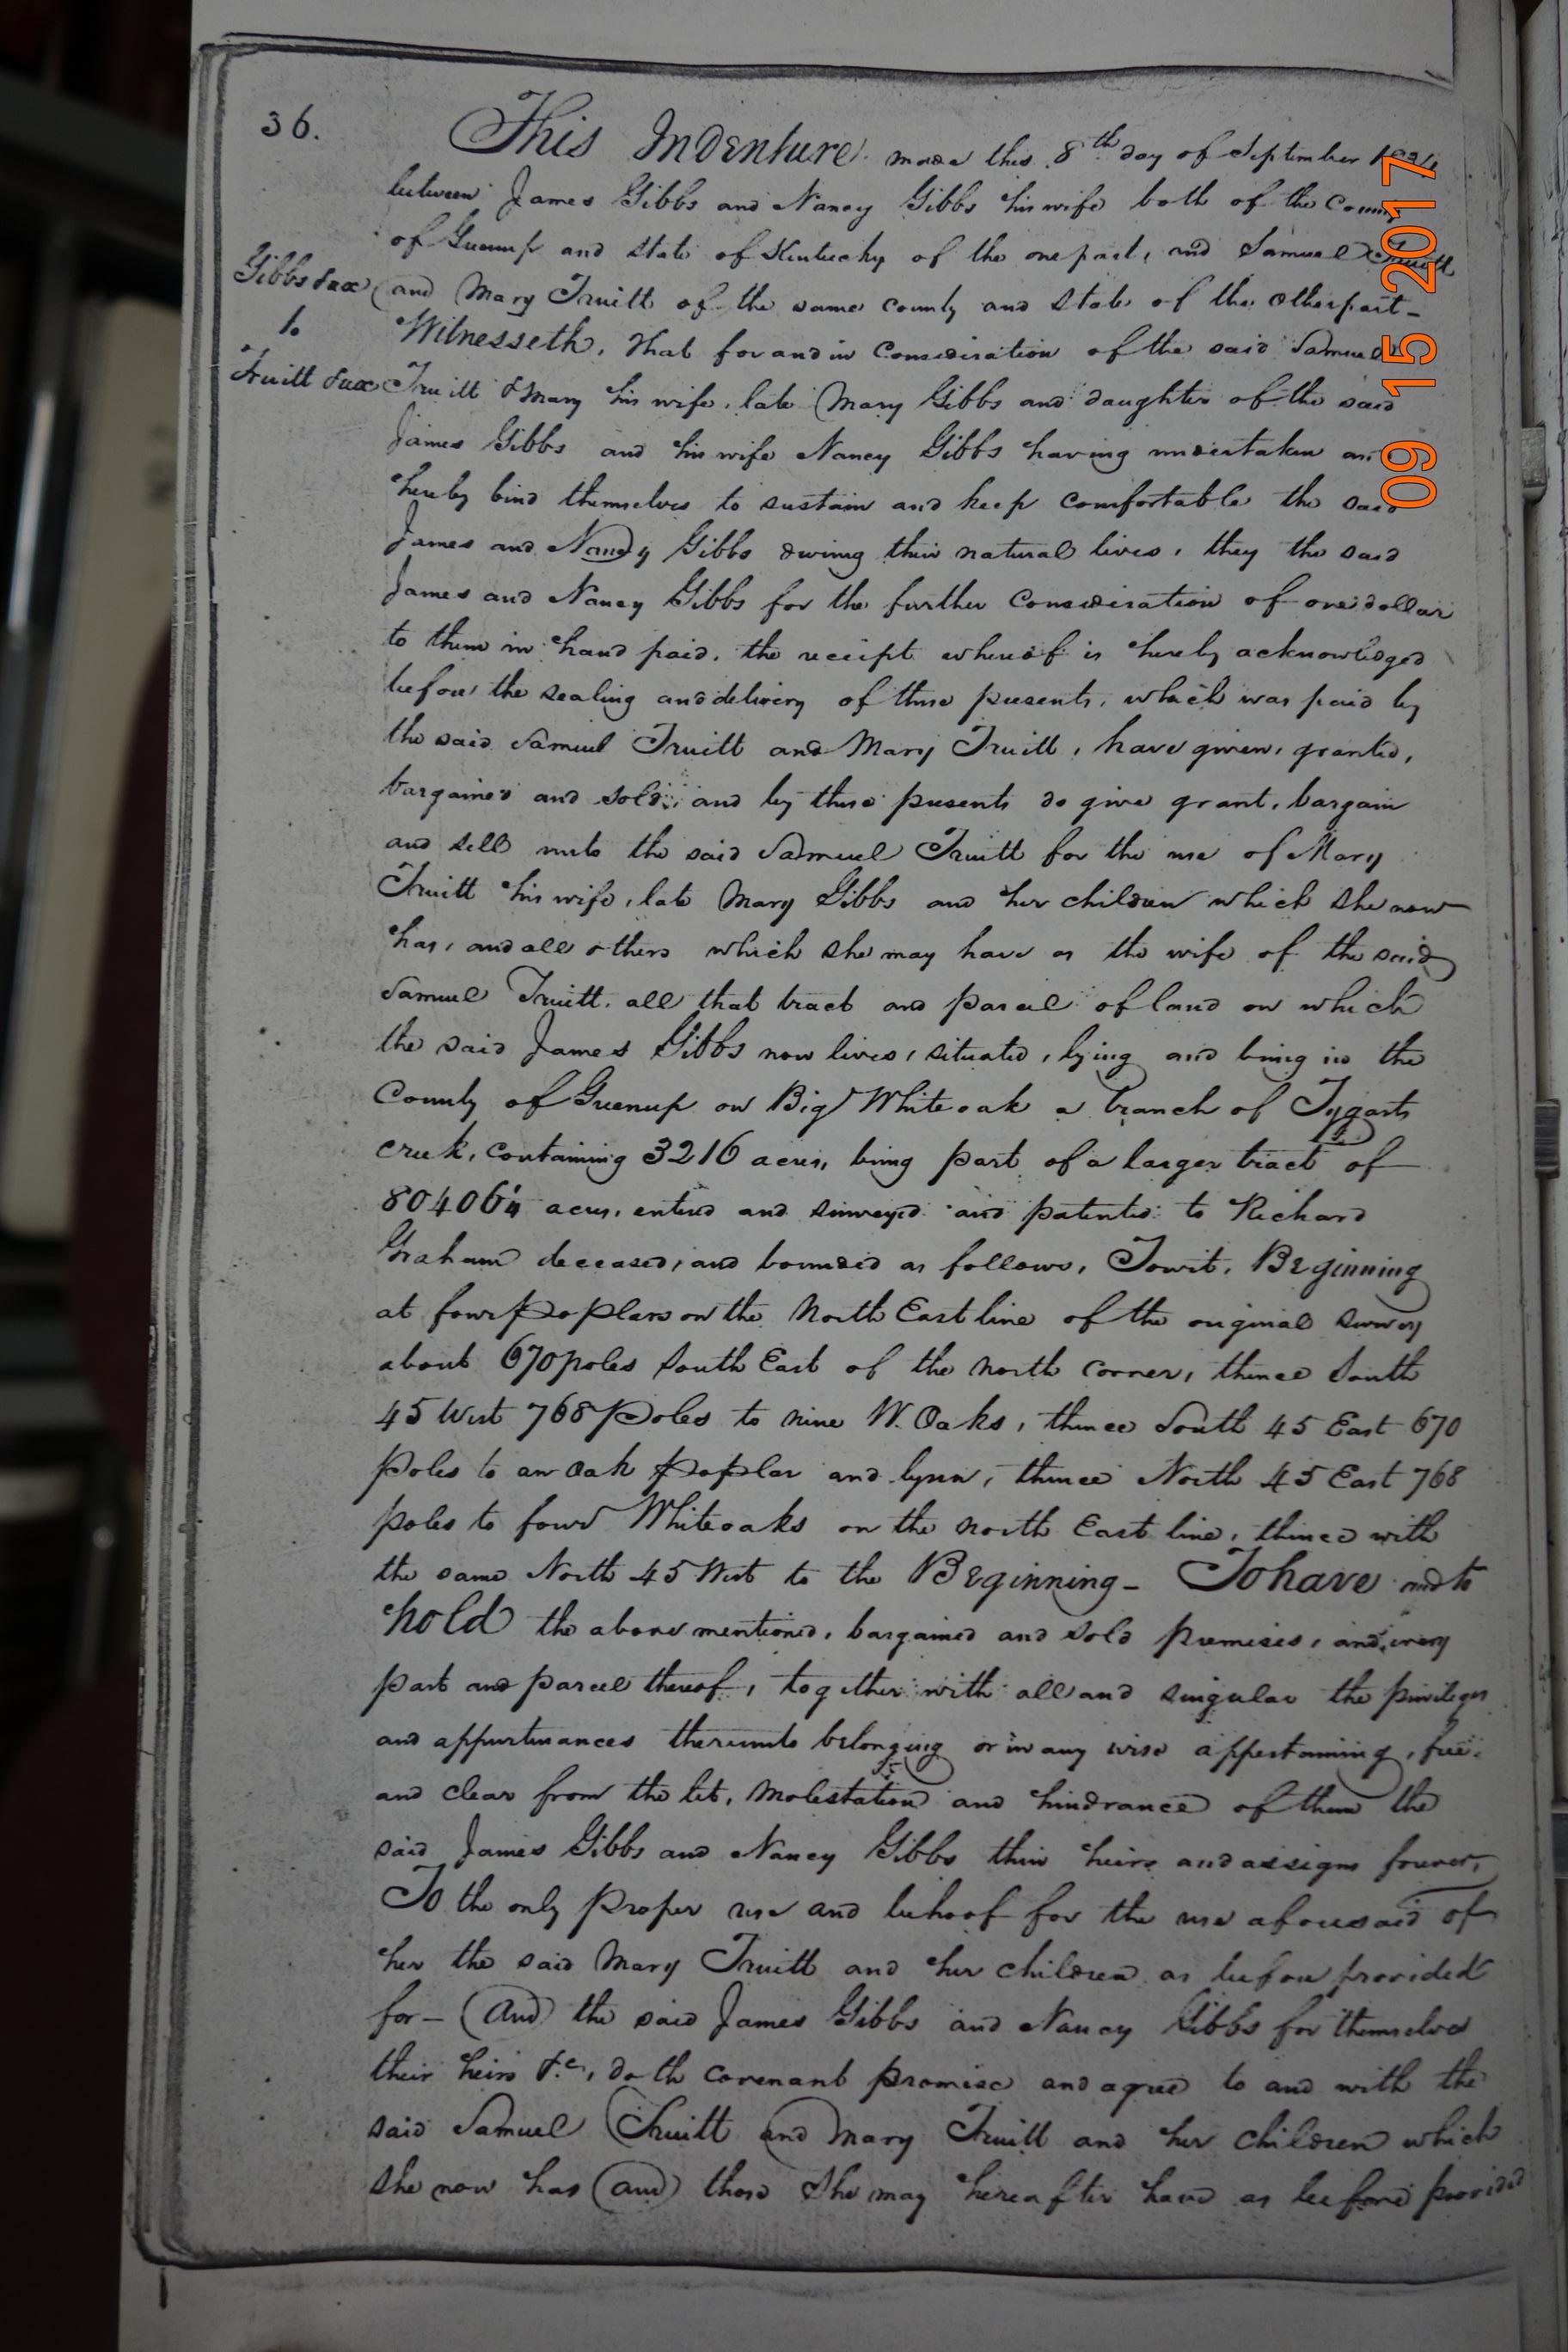 36.
This Indenture made this 8th day of September
between James Gibbs and Nancy Gibbs his wife both of the County
of Greenup and state of Kentucky of the one part, and Samuel Truitt
Gibbs &ux
and Mary Truitt of the same county and state of the other part -
to
Witnesseth, that for and in Consideration of the said Samuel
Truitt &ux
Truitt & Mary his wife, late Mary Gibbs and daughter of the said
James Gibbs and his wife Nancy Gibbs having undertaken and
hereby bind themselves to sustain and keep comfortable the said
James and Nancy Gibbs during their natural lives, they the said
James and Nancy Gibbs for the further Consideration of one dollar
to them in hand paid, the receipt whereof is hereby acknowledged
before the sealing and delivery of these presents, which was paid by
the said Samuel Truitt and Mary Truitt, have given, granted,
bargained and sold, and by these presents do give grant, bargain
and sell unto the said Samuel Truitt for the use of Mary
Truitt his wife, late Mary Gibbs and her children which she now
has, and all others which she may have as the wife of the said
Samuel Truitt, all that tract and parcel of land on which
the said James Gibbs now lives, situated, lying and being in the
County of Greenup on Big White oak a branch of Tygarts
creek, containing 3216 acres, being part of a larger tract of
acres, entered and surveyed and patented to Richard
Graham deceased, and bounded as follows, Towit, Beginning
at four poplars on the North East line of the original survey
about 670 poles South East of the North corner, thence South
45 West 768 Poles to nine W. Oaks, thence South 45 East 670
Poles to an Oak poplar and lynn, thence North 45 East 768
poles to four White oaks on the north East line, thence with
the same North 45 West to the Beginning - To have and to
hold the above mentioned, bargained and sold premises, and every
part and parcel thereof, together with all and singular the privileges
and appurtenances thereunto belonging or in any wise appertaining, free
and clear from the let, molestation and hindrance of them the
said James Gibbs and Nancy Gibbs their heirs and assigns forever,
To the only proper use and behoof for the use aforesaid of
her the said Mary Truitt and her children as before provided
for - And the said James Gibbs and Nancy Gibbs for themselves
their heirs &c, doth covenant promise and agree to and with the
said Samuel Truitt and Mary Truitt and her children which
she now has and those she may hereafter have as before provided
09 15 2017